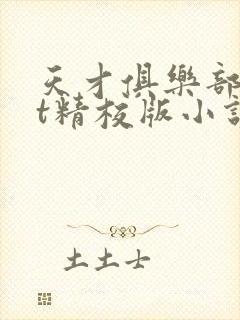 天才俱樂部
t精校版小說
土土士